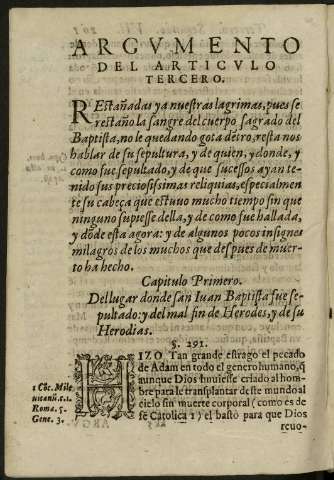 ARGVMENTO
DEL ARTICVLO
TERCERO.
REstañadas ya nuestras lagrimas, pues se
restaño la sangre del cuerpo sagrado del
Baptista, no le quedando gota dẽtro, resta nos
hablar de su sepultura, y de quien, y donde, y
como fue sepultado, y de que sucessos ayan te-
nido sus preciosissimas reliquias, especialmen
te su cabeça que estuuo mucho tiempo sin que
ninguno supiesse della, y de como fue hallada,
y dõde esta agora: y de algunos pocos insignes
milagros de los muchos que despues de muer-
to ha hecho.
Capitulo Primero.
Del lugar donde san Iuan Baptista fue se-
pultado: y del mal fin de Herodes, y de su
Herodias.
§. 291.
HIZO Tan grande estrago el pecado
de Adam en todo el genero humano, q̃
aunque Dios huuiesse criado al hom-
bre para le transplantar deste mundo al
cielo sin muerte corporal (como es de
fè Catolica 1) el bastò para que Dios
reuo-
1 Cõc. Mile
uitanũ. c. 1.
Roma. 5.
Gene. 3.